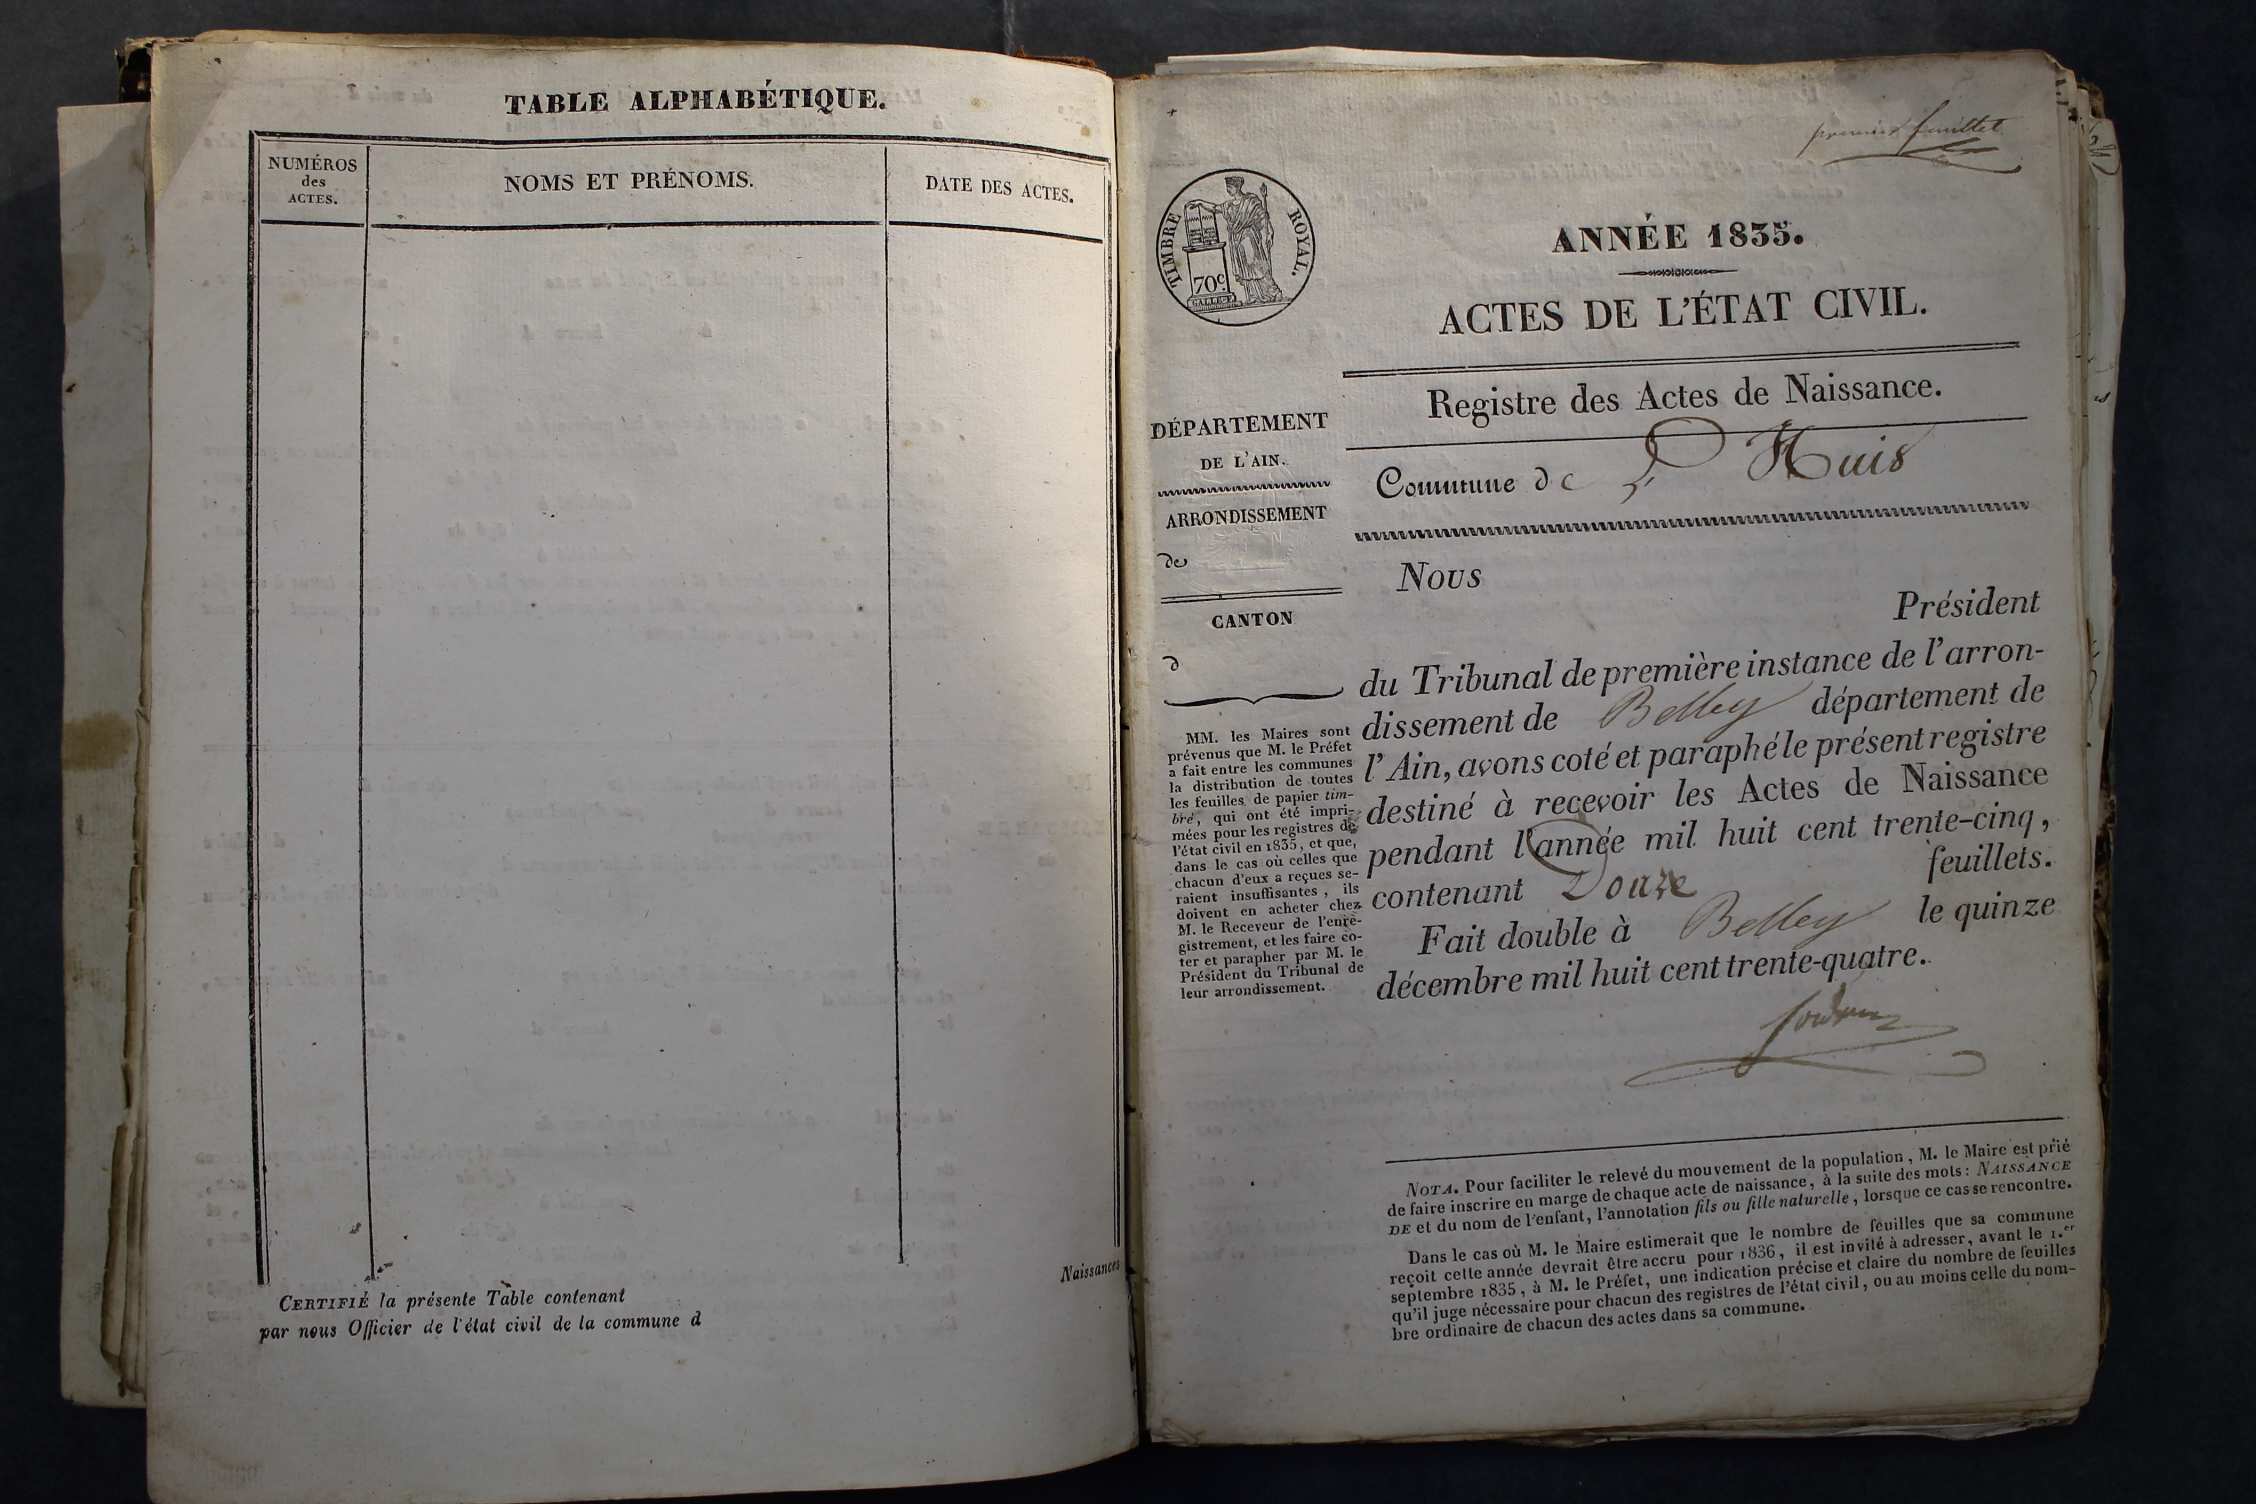 TABLE ALPHABÉTIQUE.
NUMÉROS
des
ACTES.
NOMS ET PRÉNOMS.
DATE DES ACTES.
Naissances
CERTIFIÉ la présente Table contenant
par nous Officier de l'état civil de la commune d
premier feuillet
TIMBRE ROYAL.
70c
ANNÉE 1835.
ACTES DE L'ÉTAT CIVIL.
Registre des Actes de Naissance.
Commune de L'Huis
DÉPARTEMENT
DE L'AIN.
ARRONDISSEMENT
de
CANTON
d
MM. les Maires sont
prévenus que M. le Préfet
a fait entre les communes
la distribution de toutes
les feuilles de papier tim-
bré, qui ont été impri-
mées pour les registres de
l'état civil en 1835, et que,
dans le cas où celles que
chacun d'eux a reçues se-
raient insuffisantes, ils
doivent en acheter chez
M. le Receveur de l'enre-
gistrement, et les faire co-
ter et parapher par M. le
Président du Tribunal de
leur arrondissement.
Nous
Président
du Tribunal de première instance de l'arron-
dissement de Belley département de
l'Ain, avons coté et paraphé le présent registre
destiné à recevoir les Actes de Naissance
pendant l'année mil huit cent trente-cinq,
contenant Douze feuillets.
Fait double à Belley le quinze
décembre mil huit cent trente-quatre.
NOTA. Pour faciliter le relevé du mouvement de la population, M. le Maire est prié
de faire inscrire en marge de chaque acte de naissance, à la suite des mots: NAISSANCE
DE et du nom de l'enfant, l'annotation fils ou fille naturelle, lorsque ce cas se rencontre.
Dans le cas où M. le Maire estimerait que le nombre de feuilles que sa commune
reçoit cette année devrait être accru pour 1836, il est invité à adresser, avant le 1.er
septembre 1835, à M. le Préfet, une indication précise et claire du nombre de feuilles
qu'il juge nécessaire pour chacun des registres de l'état civil, ou au moins celle du nom-
bre ordinaire de chacun des actes dans sa commune.